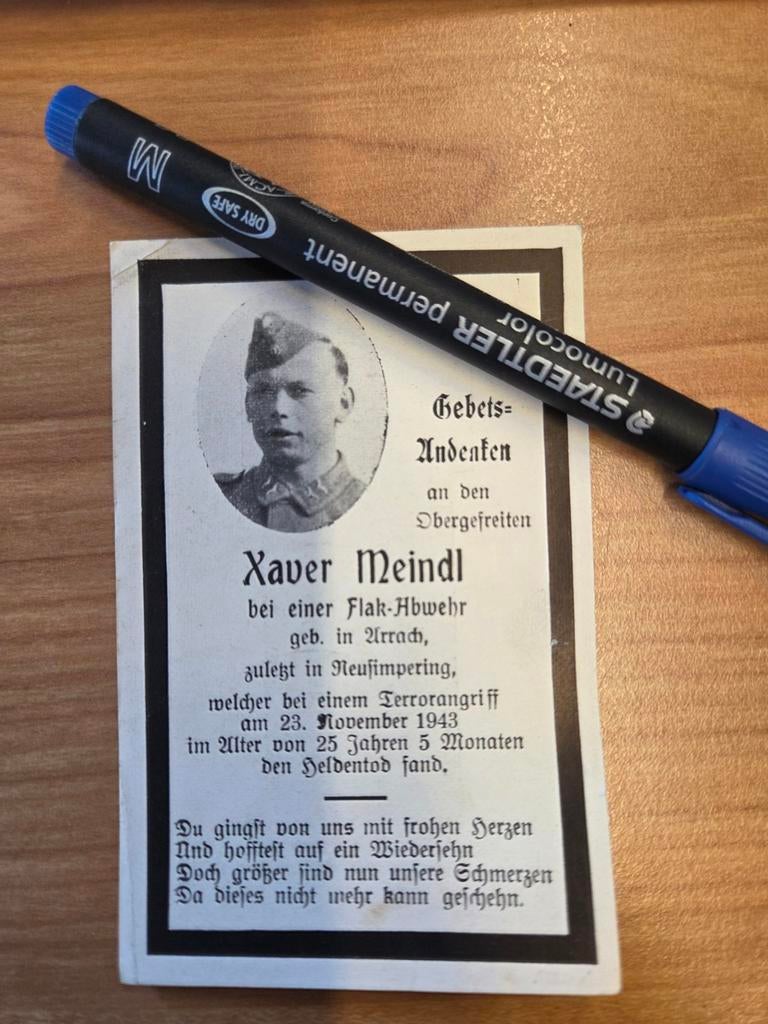 M
DRY SAFE
STAEDTLER permanent
Lumocolor
Gebets=
Andenken
an den
Obergefreiten
Xaver Meindl
bei einer Flak-Abwehr
geb. in Arrach,
zuletzt in Neusimpering,
welcher bei einem Terrorangriff
am 23. November 1943
im Alter von 25 Jahren 5 Monaten
den Heldentod fand.
Du gingst von uns mit frohen Herzen
Und hofftest auf ein Wiedersehn
Doch größer sind nun unsere Schmerzen
Da dieses nicht mehr kann geschehn.